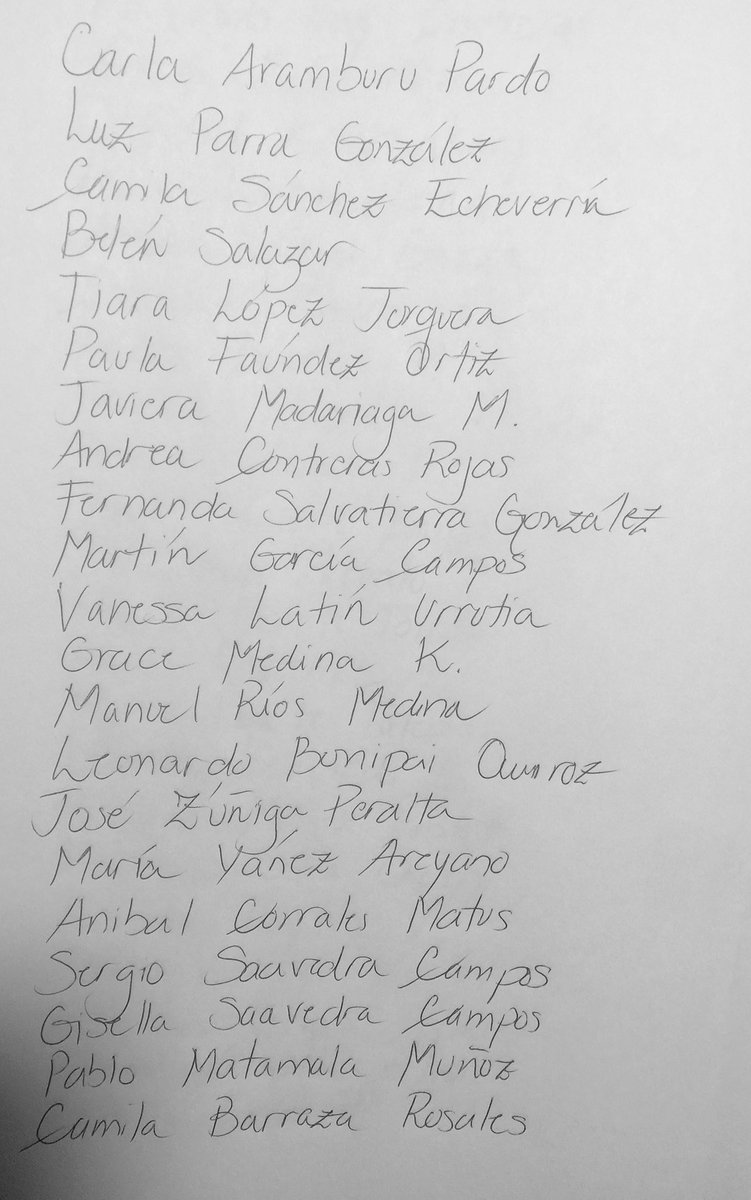 Carla Aramburu Pardo
Luz Parra González
Camila Sánchez Echeverría
Belén Salazar
Tiara López Jorquera
Paula Faúndez Ortiz
Javiera Madariaga M.
Andrea Contreras Rojas
Fernanda Salvatierra González
Martín García Campos
Vanessa Latín Urrutia
Grace Medina K.
Manuel Ríos Medina
Leonardo Bonipai Quiroz
José Zúñiga Peralta
María Yáñez Areyano
Anibal Corrales Matus
Sergio Saavedra Campos
Gisella Saavedra Campos
Pablo Matamala Muñoz
Camila Barraza Rosales